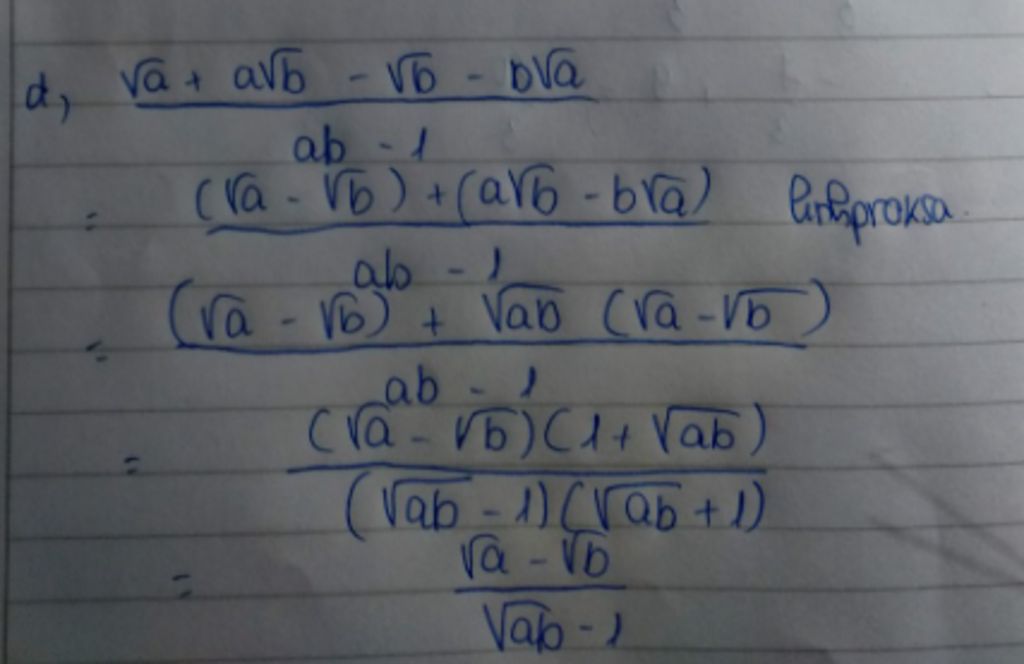 d, √a + a√b - √b - b√a
ab - 1
= (√a - √b) + (a√b - b√a)
ab - 1
= (√a - √b) + √ab (√a - √b)
ab - 1
= (√a - √b)(1 + √ab)
(√ab - 1)(√ab + 1)
= √a - √b
√ab - 1